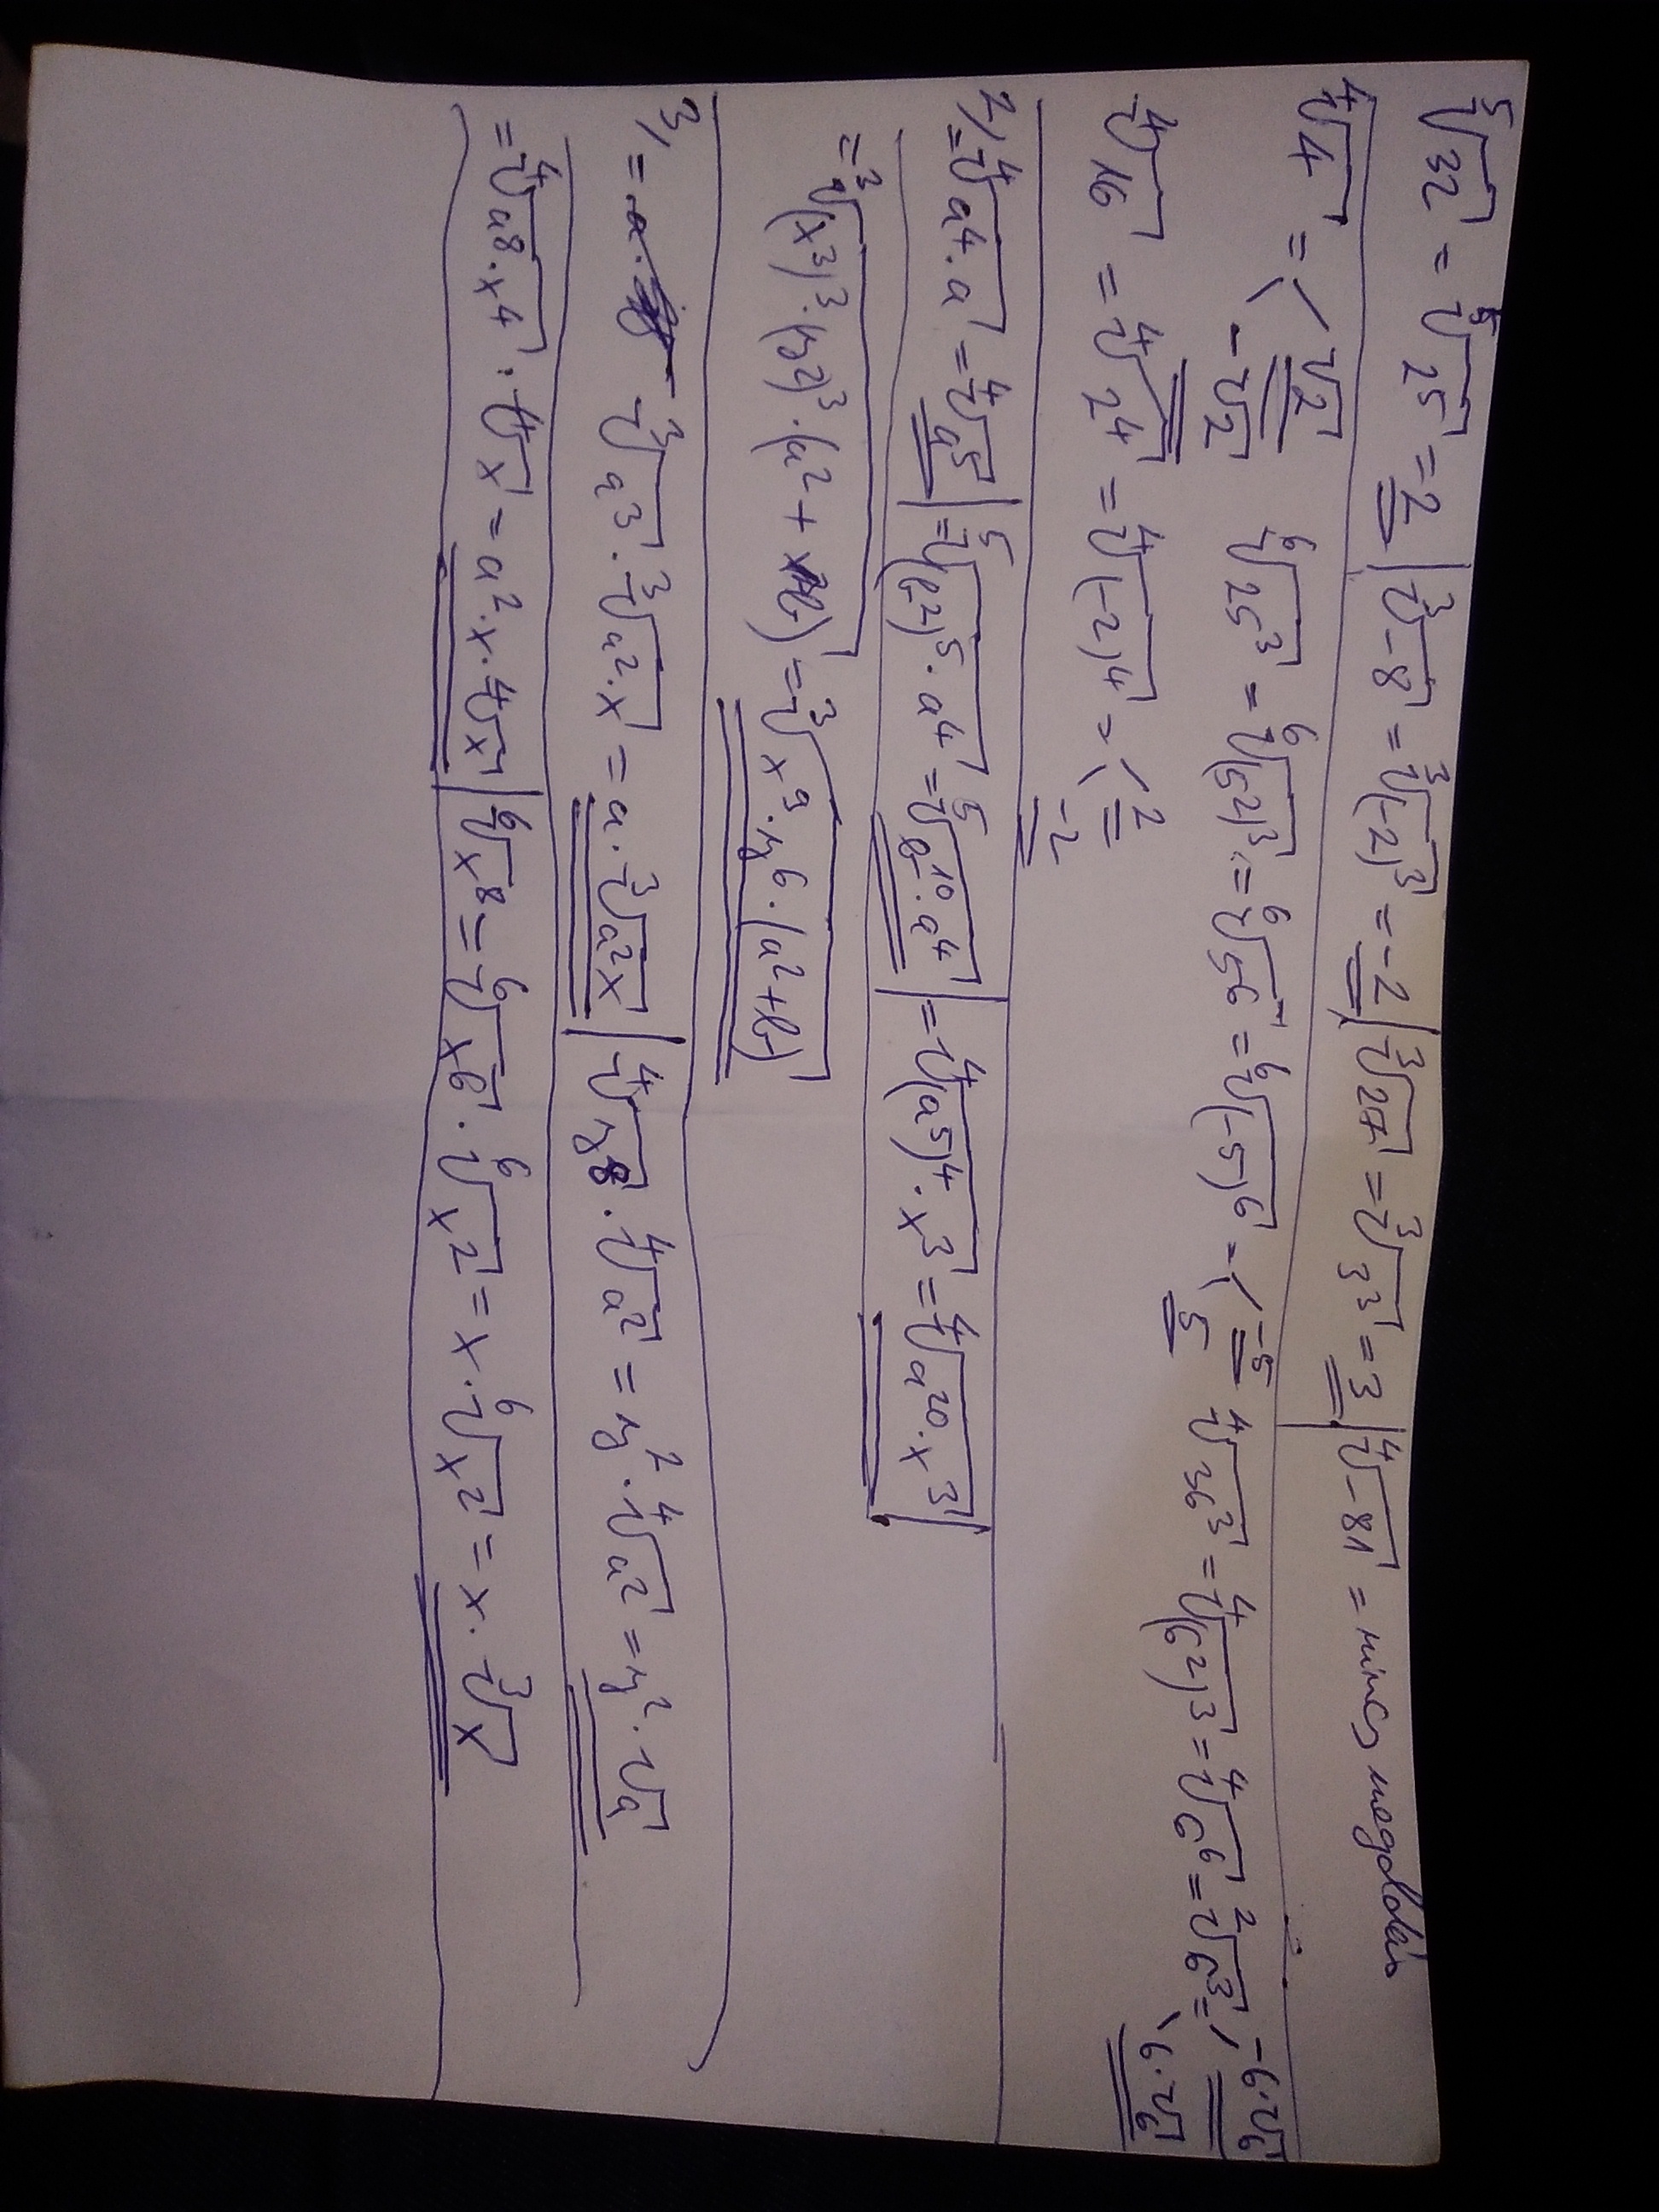 ⁵√32 = ⁵√2⁵ = 2 | ³√-8 = ³√(-2)³ = -2 | ³√27 = ³√3³ = 3 | ⁴√-81 = nincs megoldás
⁴√4 = √2 -√2 ⁶√25³ = ⁶√(5²)³ = ⁶√5⁶ = ⁶√(-5)⁶ = -5 5 ⁴√36³ = ⁴√(6²)³ = ⁴√6⁶ = ²√6³ = -6·√6 6·√6
⁴√16 = ⁴√2⁴ = ⁴√(-2)⁴ = 2 -2
2, = ⁴√a⁴·a = ⁴√a⁵ | = ⁵√(b²)⁵·a⁴ = ⁵√b¹⁰·a⁴ | = ⁴√(a⁵)⁴·x³ = ⁴√a²⁰·x³ |
= ³√(x³)³·(y²)³·(a²+b) = ³√x⁹·y⁶·(a²+b)
3, = ³√a³·³√a²·x = a·³√a²x | ⁴√y⁸·⁴√a² = y²·⁴√a² = y²·√a
= ⁴√a⁸·x⁴·⁴√x = a²·x·⁴√x | ⁶√x⁸ = ⁶√x⁶·⁶√x² = x·⁶√x² = x·³√x